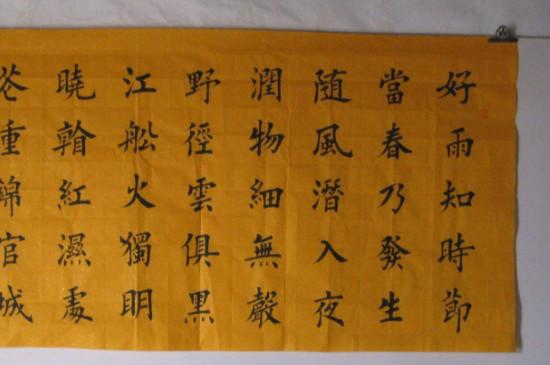 好雨知時節
當春乃發生
随風潛入夜
潤物細無聲
野徑雲俱黑
江船火獨明
曉看紅濕處
花重錦官城